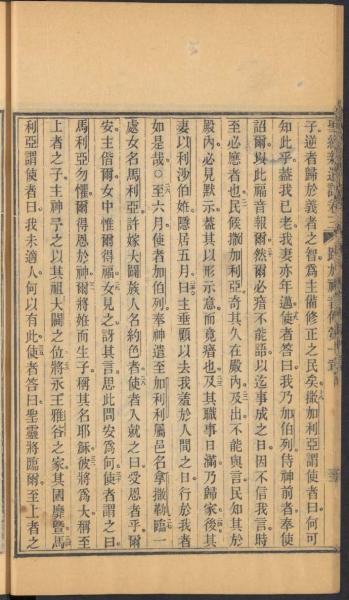 聖經新遺詔卷三 路加傳福音書第一章
子逆者歸於義者之智爲主備修正之民矣撒加利亞謂使者曰何可
知此乎蓋我已老我妻亦年邁使者答曰我乃加伯列侍神前者奉使
詔爾與此福音報爾然爾必瘖不能語以迄事成之日因不信我言時
至必應者也民候撒加利亞奇其久在殿內及出不能與言民知其於
殿內必見默示蓋其以形示意而竟瘖也及其職事日滿乃歸家後其
妻以利沙伯姙隱居五月曰主垂顧以去我羞於人間之日行於我者
如是哉○至六月使者加伯列奉神遣至加利利屬邑名拿撒勒臨一
處女名馬利亞許嫁大闢族人名約色者使者入就之曰受恩者乎爾
安主偕爾女中惟爾得福女見之訝其言思此問安爲何使者謂之曰
馬利亞勿懼爾得恩於神爾將姙而生子稱其名耶穌彼將爲大稱至
上者之子主神予之以其祖大闢之位將永王雅谷之家其國靡曁馬
利亞謂使者曰我未適人何以有此使者答曰聖靈將臨爾至上者之